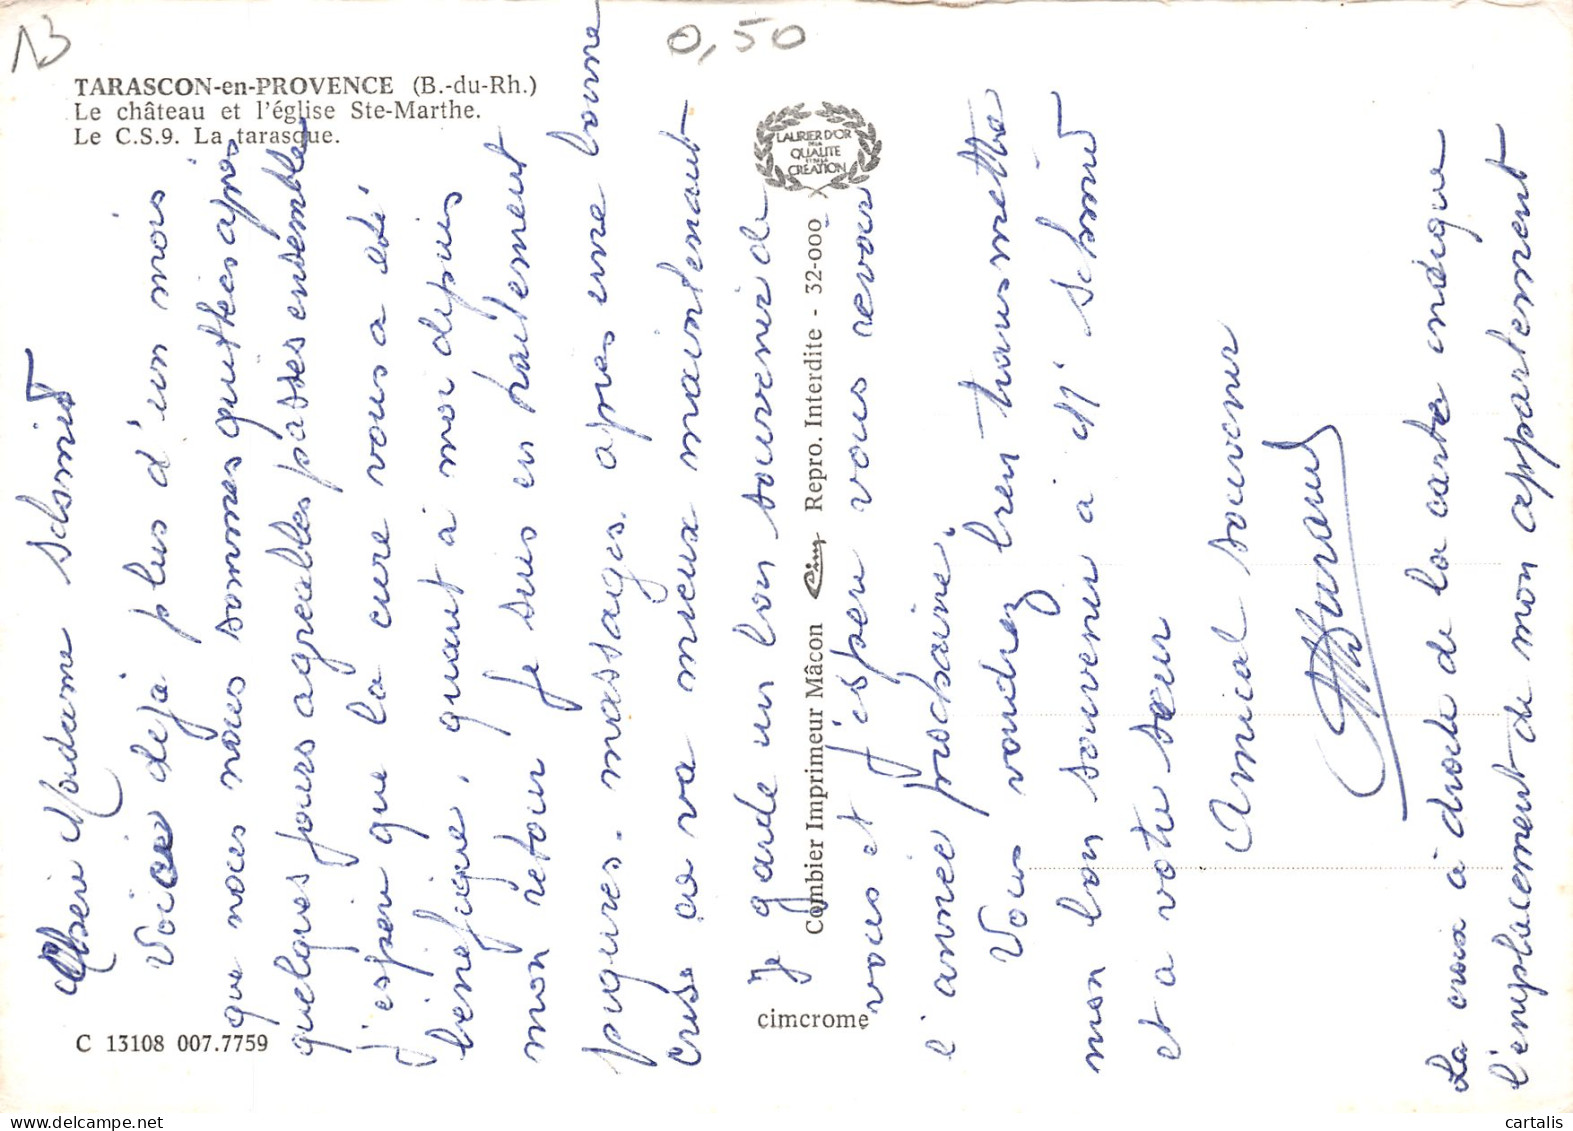 13
0,50
TARASCON-en-PROVENCE (B.-du-Rh.)
Le château et l'église Ste-Marthe.
Le C.S.9. La tarasque.
LAURIER D'OR
DE LA
QUALITE
ET DE LA
CREATION
Chère Madame Schmid
Voici déjà plus d'un mois
que nous nous sommes quittées après
quelques jours agréables passés ensembles
j'esper que la cure vous a été
bénéfique, quant à moi depuis
mon retour je suis en traitement
piqures. massages. apres une bonne
crise ca va mieux maintenant
Je garde un bon souvenir de
vous et j'esper vous revoir
l'année prochaine.
Vous voudrez bien transmettre
mon bon souvenir à Mr Schmid
et a votre sœur
Amical souvenir
La croix à droite de la carte indique
l'emplacement de mon appartement
Combier Imprimeur Mâcon Cim Repro. Interdite - 32-000
cimcrome
C 13108 007.7759
cartalis
www.delcampe.net